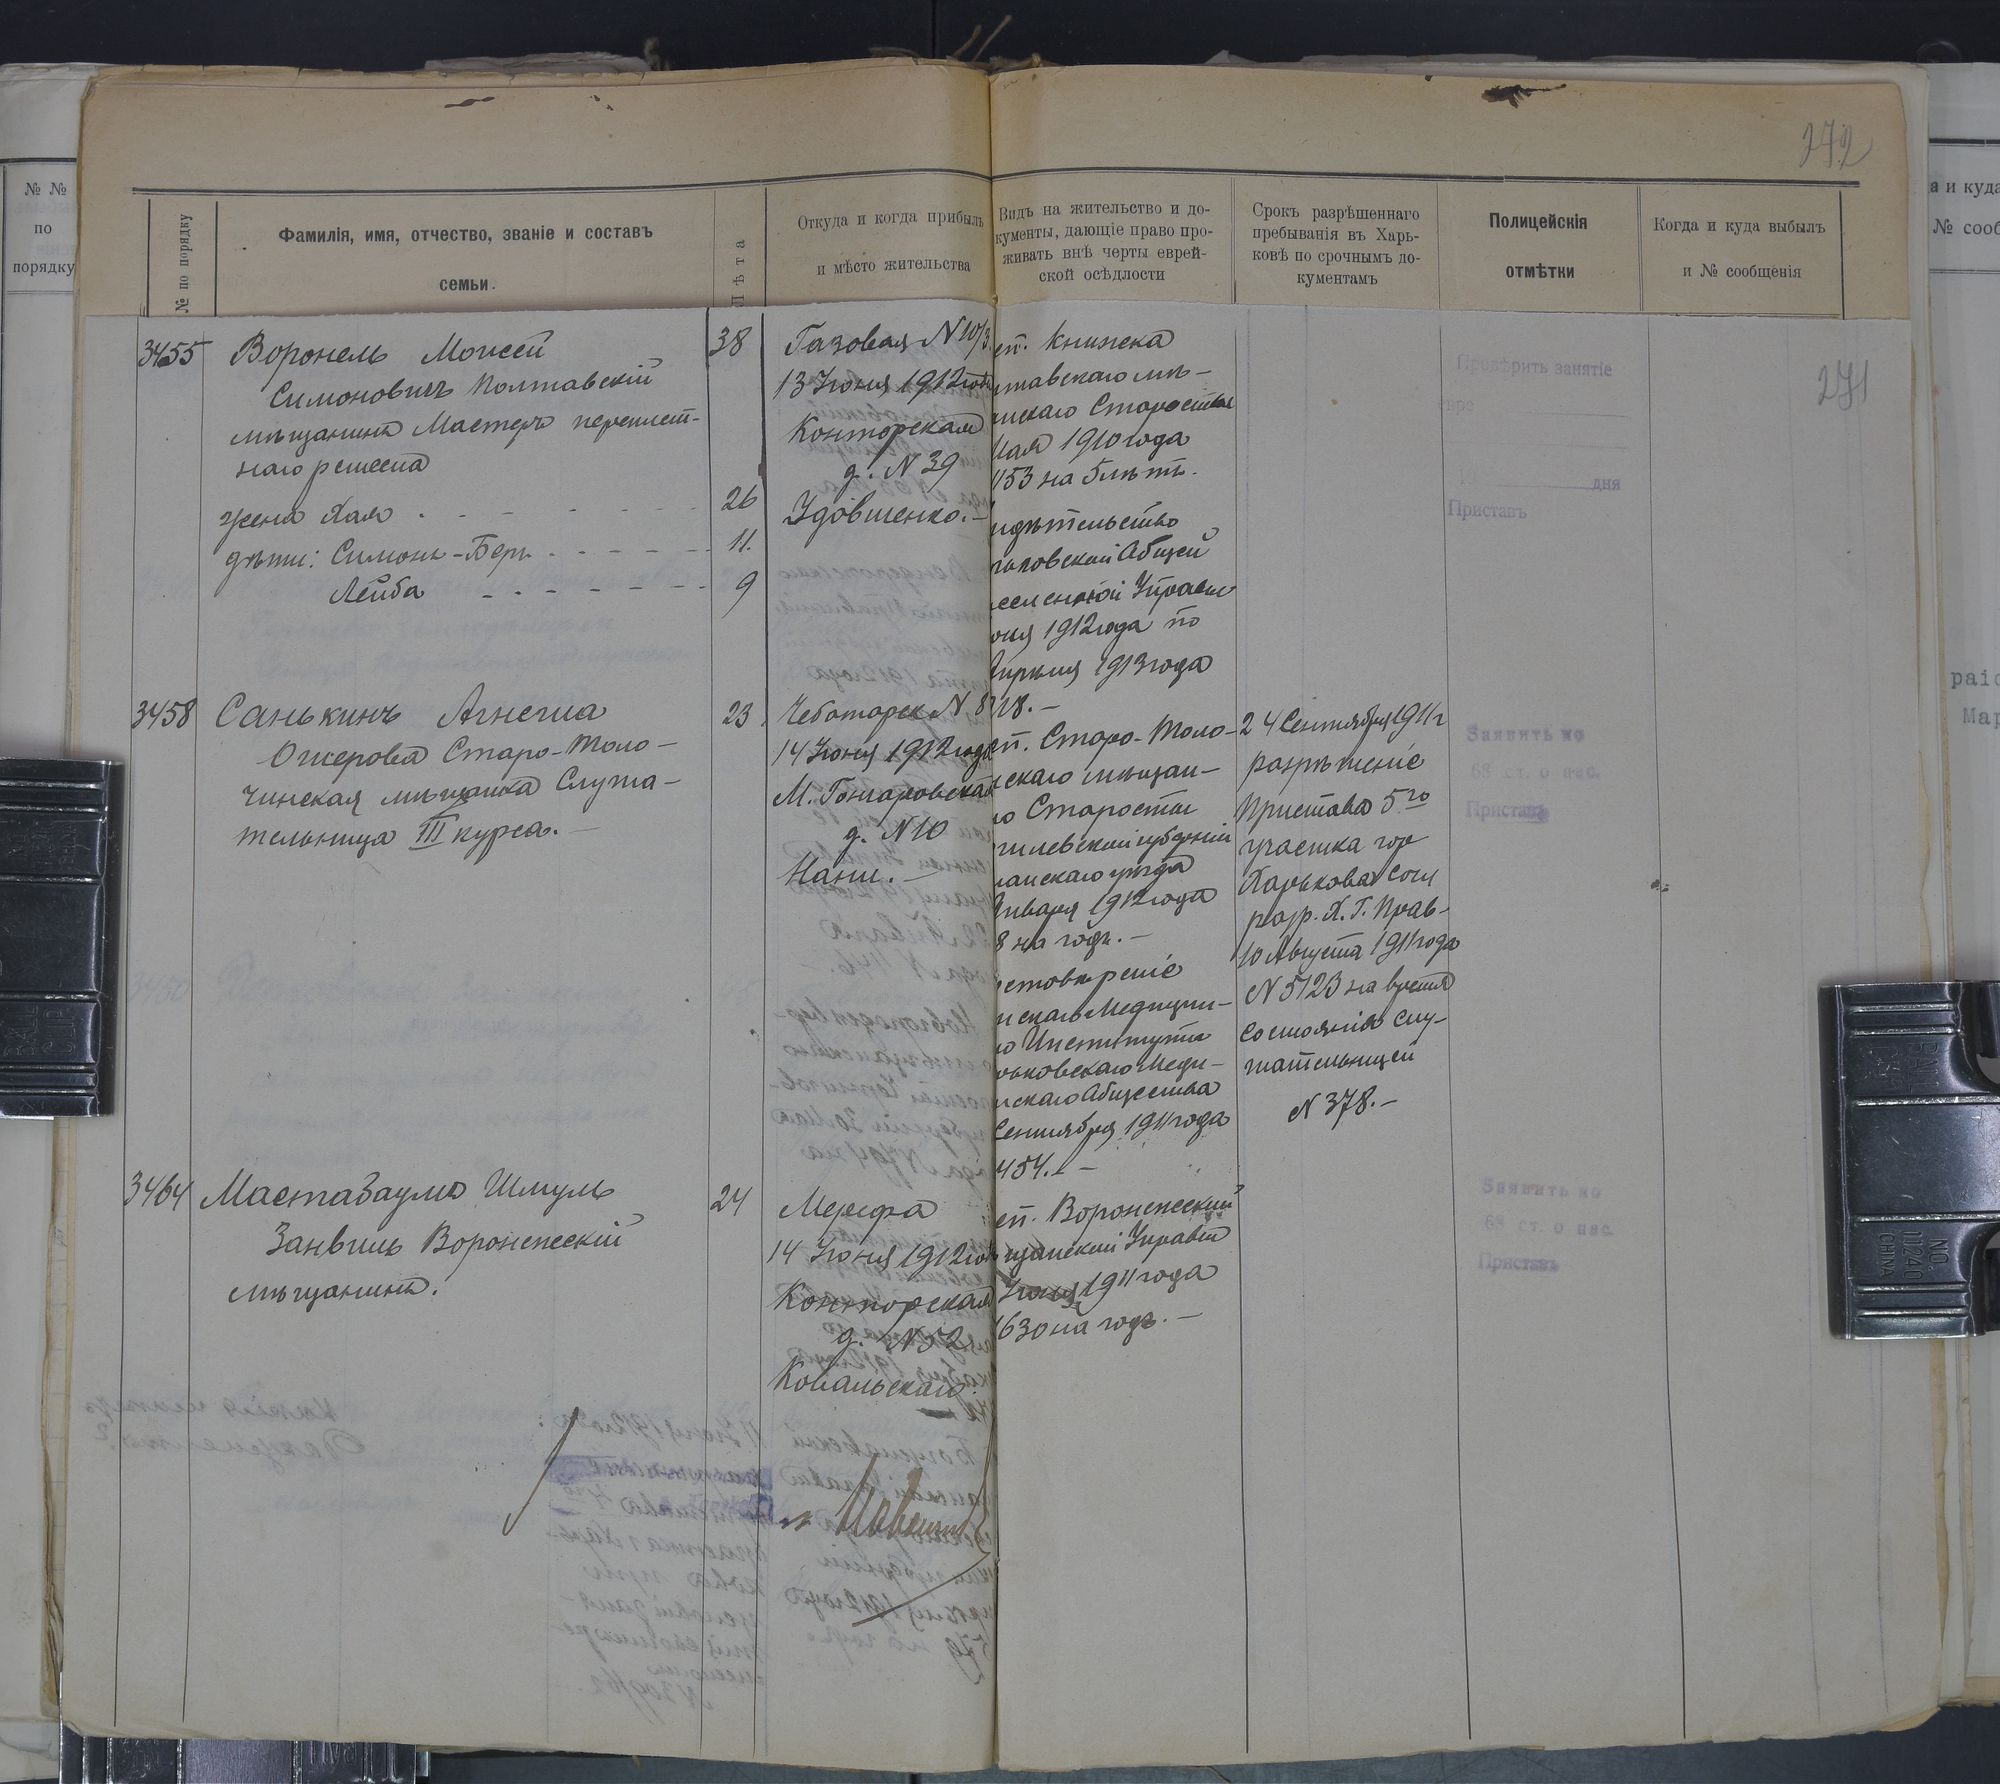 272
№ по порядку
Фамилія, имя, отчество, званіе и составъ
семьи.
Лѣта
Откуда и когда прибылъ
и мѣсто жительства
Видъ на жительство и до-
кументы, дающіе право про-
живать внѣ черты еврей-
ской осѣдлости
Срокъ разрѣшеннаго
пребыванія въ Харь-
ковѣ по срочнымъ до-
кументамъ
Полицейскія
отмѣтки
Когда и куда выбылъ
и № сообщенія
№ №
по
порядку
а и куда
№ сооб
271
3455
Воронель Моисей
Симоновичъ Полтавскій
мѣщанинъ Мастеръ переплет-
наго ремесла
жена Хая
дѣти: Симонъ-Беръ
Лейба
38
26
11.
9
Газовая N 10/3
13 Іюня 1912 года
Конторская
д. N 39
Удовиченко.-
еп. книжка
лтавскаго мѣ-
нскаго Старосты
Мая 1910 года
153 на 5 лѣтъ.
идѣтельство
Общей
Управы
1912 года по
Апрѣля 1913 года
718.-
Провѣрить занятіе
дня
Приставъ
3458
Санькинъ Агнесса
Ошерова Старо-Толо-
чинская мѣщанка Слуша-
тельница III курса.-
23
Чеботарск N 8
14 Іюня 1912 года
М. Гончаровская
д. N 10
Нани.-
еп. Старо-Толо-
нскаго мѣщан-
о Старосты
гилевской губерніи
уѣзда
Января 1912 года
8 на годъ.-
стовѣреніе
нскаго Медицин-
о Института
рьковскаго Меди-
нскаго Общества
Сентября 1911 года
454.-
24 Сентября 1911 г
разрѣшеніе
Пристава 5го
участка гор
Харькова согл
разр. Х. Г. Прав-
10 Августа 1911 года
N 5123 на время
состоянія слу-
шательницей
N 378.-
Заявить по
68 ст. о пас.
Приставъ
3464
Мастабаумъ Шмуль
Занвиль Воронежскій
мѣщанинъ.
24
Мерефа
14 Іюня 1912 год
Конторская
д. N 52
Ковальскаго
еп. Воронежский
щанской Управы
Іюня 1911 года
1630 на годъ.-
Заявить по
68 ст. о пас.
Приставъ
раіо
Мар
NO. 11240
CHINA